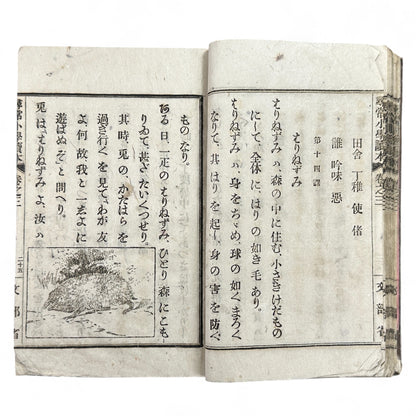 田舎 丁稚 使 偖
誰 吟味 惡
第十四課
はりねずみ
はりねずみハ、森の中に住む、小さきけだもの
にして、全体に、はりの如き毛あり。
はりねずみハ、身をちゞめ、球の如く、まろく
なりて、其はりを起し、身の害を防ぐ
ものなり。
ある日一疋のはりねずみ、ひとり森にこも
りゐて、甚ざたいくつせり。
其時兎の、かたはらを
過ぎ行くを見て、わが友
よ、何故我と一志よに
遊ばぬぞと問へり。
兎は、はりねずみよ、汝ハ
尋常小學讀本
卷之二
二十五
文部省